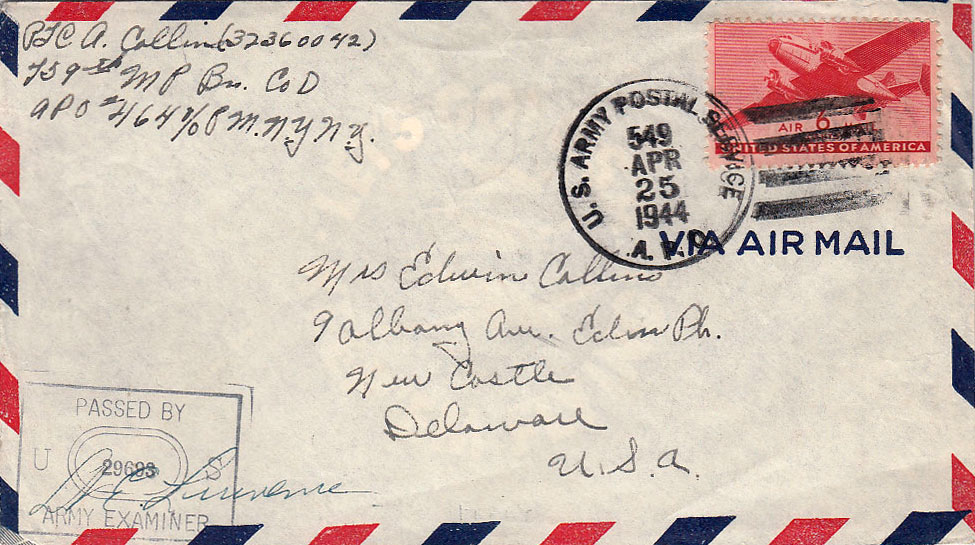 PFC A. Collin (32360042)
759th MP Bn. Co D
APO #464 c/o P.M. N.Y. N.Y.
AIR 6¢
UNITED STATES OF AMERICA
U. S. ARMY POSTAL SERVICE
549
APR
25
1944
A. P. O.
VIA AIR MAIL
Mrs Edwin Collins
9 Albany Ave. Edin Pk.
New Castle
Delaware
U. S. A.
PASSED BY
U 29693 S
ARMY EXAMINER